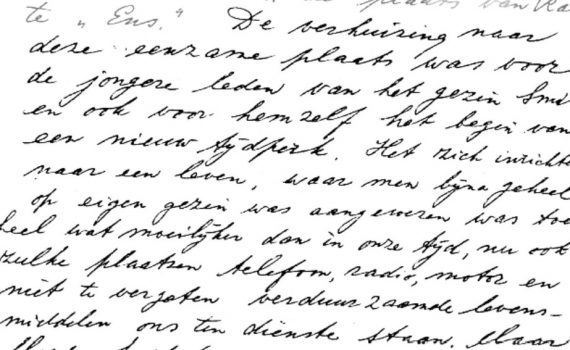 plaats van Ra
te "Ens." De verhuizing naar
deze eenzame plaats was voor
de jongere leden van het gezin Smi
en ook voor hemzelf het begin van
een nieuw tijdperk. Het zich inrichte
naar een leven, waar men bijna geheel
op eigen gezin was aangewezen was toe
heel wat moeilijker dan in onze tijd, nu ook
zulke plaatsen telefoon, radio, motor en
niet te vergeten verduurzaamde levens-
middelen ons ten dienste staan. Maar